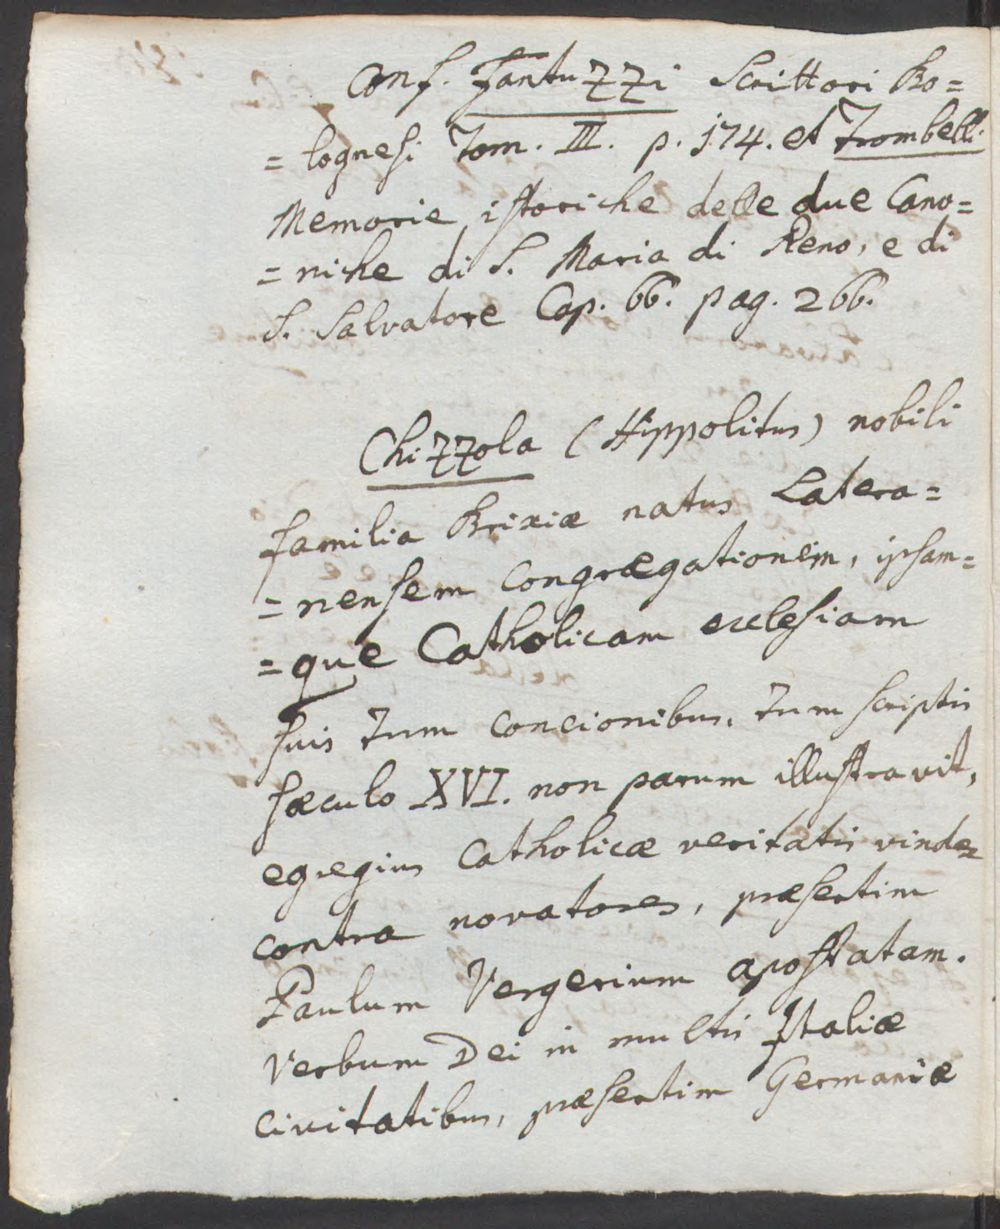 Conf. Fantuzzi Scrittori Bo=
=lognesi Tom. III. p. 174. et Trombelli
Memorie istoriche delle due Cano=
=niche di S. Maria di Reno, e di
S. Salvatore Cap. 66. pag. 266.
Chizzola (Hippolitus) nobili
familia Brixiæ natus Latera=
=nensem congrægationem, ipsam=
=que Catholicam ecclesiam
suis tum concionibus, tum scriptis
sæculo XVI. non parum illustravit,
egregius Catholicæ veritatis vindex
contra novatores, præsertim
Paulum Vergerium apostatam.
Verbum Dei in multis Italiæ
civitatibus, præsertim Germaniæ